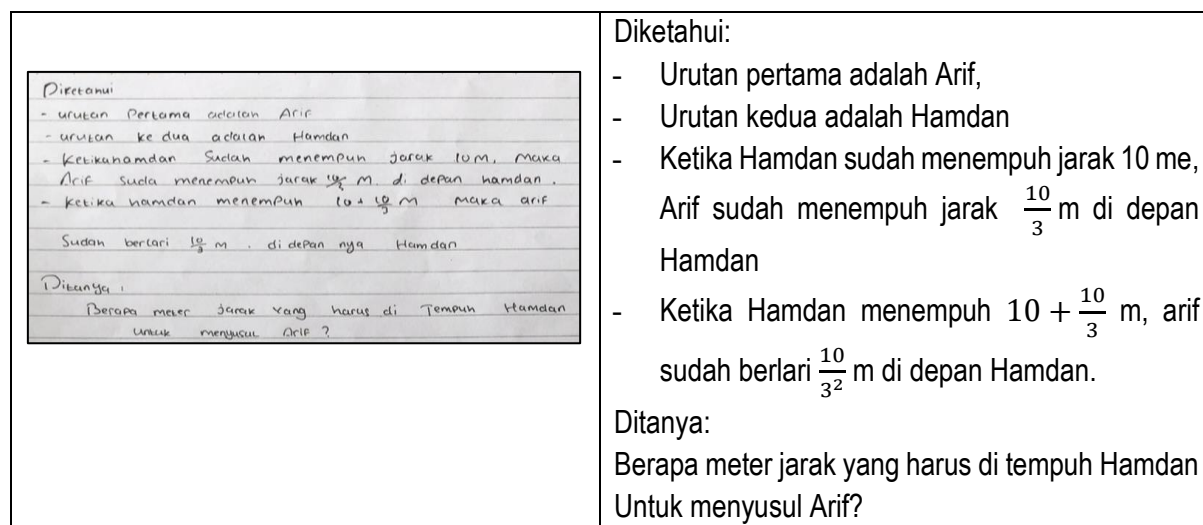 Diketanui
- urutan Pertama adalah Arif
- urutan ke dua adalah Hamdan
- Ketikahamdan Sudah menempuh jarak 10 M, maka
Arif suda menempuh jarak M di depan hamdan.
- Ketika hamdan menempuh 10 + 10/3 M maka arif
Sudah berlari 10/3 M . di depan nya Hamdan
Ditanya :
Berapa meter jarak yang harus di Tempuh Hamdan
untuk menyusul Arif ?
Diketahui:
- Urutan pertama adalah Arif,
- Urutan kedua adalah Hamdan
- Ketika Hamdan sudah menempuh jarak 10 me,
Arif sudah menempuh jarak 10/3 m di depan
Hamdan
- Ketika Hamdan menempuh 10 + 10/3 m, arif
sudah berlari 10/3² m di depan Hamdan.
Ditanya:
Berapa meter jarak yang harus di tempuh Hamdan
Untuk menyusul Arif?